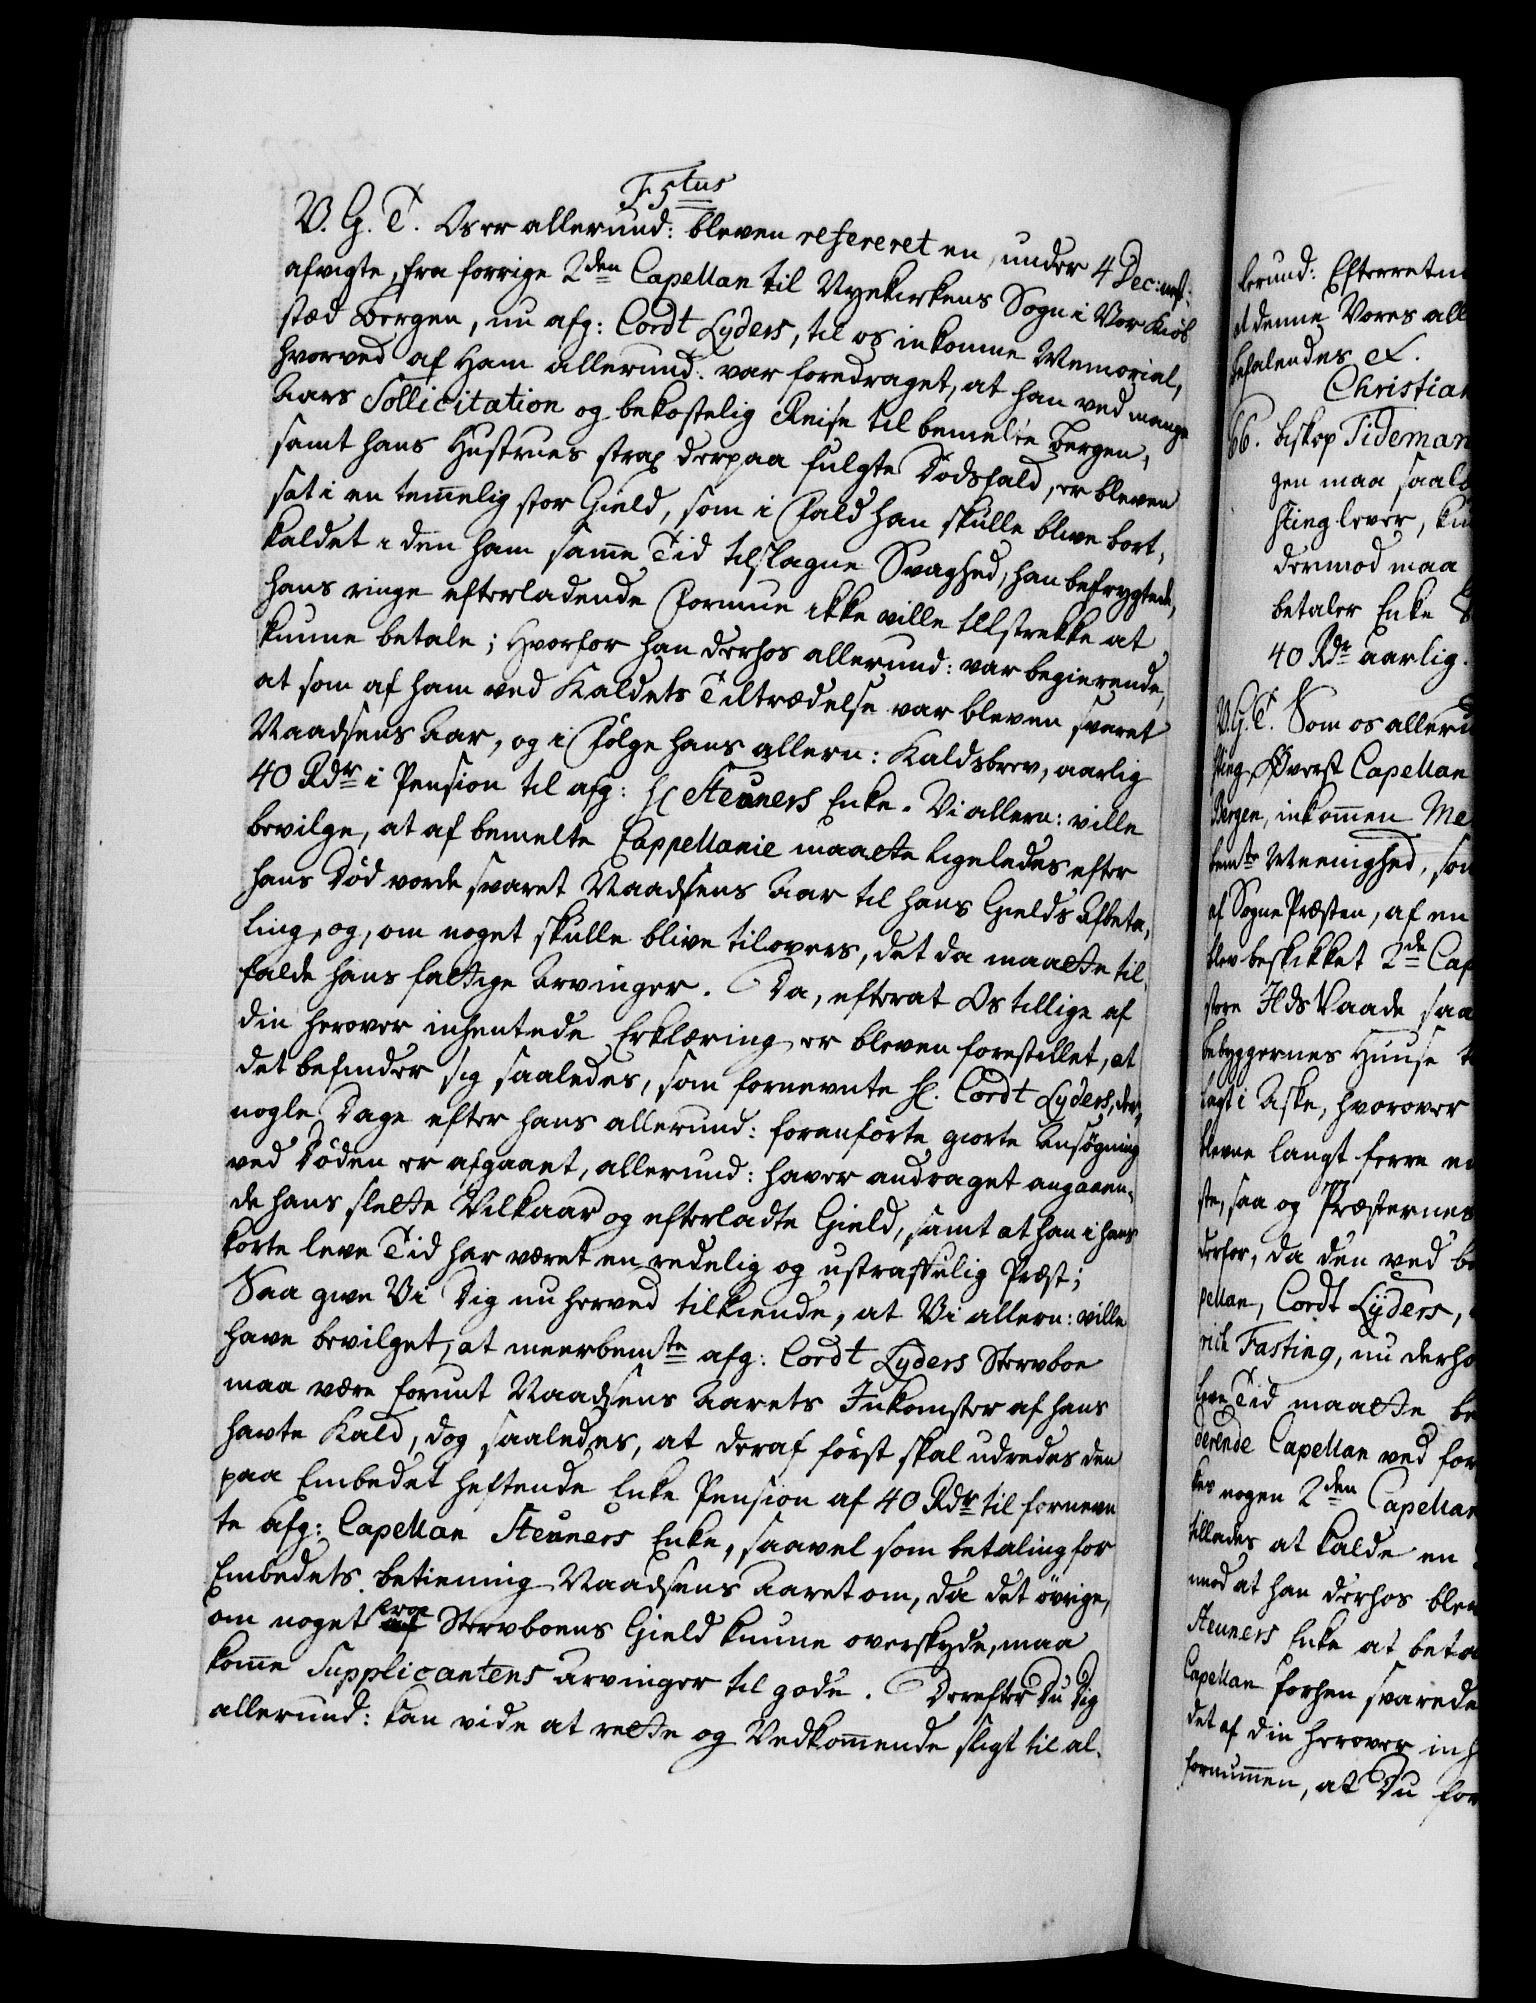 F 5tus
V. G. T. Os er allerund: bleven refereret en, under 4 Dec: nest-
afvigte, fra forrige 2den Capellan til Nyekirkens Sogn i Vor Kiöb-
stæd Bergen, nu afg: Cordt Lyders, til os inkomne Memorial,
hvorved af ham allerund: var foredraget, at han ved mange
Aars Sollicitation og bekostelig Reise til bemelte Bergen,
samt hans Hustrues strax derpaa fulgte Dödsfald, er bleven
sat i en temmelig stor Gield, som i Fald han skulle blive bort-
kaldet i den ham samme Tid tilslagne Svaghed, han befrygtede,
hans ringe efterladende Formue ikke ville tilstrekke at
kunne betale; Hvorfor han derhos allerund: var begierende,
at som af ham ved Kaldets Tiltrædelse var bleven svaret
Naadsens Aar, og i Fölge hans allern: Kaldsbrev, aarlig
40 Rdr i Pension til afg: Hr Steuners Enke. Vi allern: ville
bevilge, at af bemelte Cappellanie maatte ligeledes efter
hans Död vorde svaret Naadsens Aar til hans Gields Afbeta-
ling, og, om noget skulle blive tilovers, det da maatte til-
falde hans fattige Arvinger. Da, efterat Os tillige af
din herover inhentede Erklæring er bleven forestillet, at
det befinder sig saaledes, som fornevnte Hr. Cordt Lyders, der,
nogle Dage efter hans allerund: foranförte giorte Ansögning
ved Döden er afgaaet, allerund: haver andraget angaaen-
de hans slette Vilkaar og efterladte Gield, samt at han i hans
korte leve Tid har været en redelig og ustraffelig Præst;
Saa give Vi Dig nu herved tilkiende, at Vi allern: ville
have bevilget, at meerbemte afg: Cordt Lyders Stervboe
maa være forunt Naadsens Aarets Inkomster af hans
havte Kald, dog saaledes, at deraf först skal udredes den
paa Embedet heftende Enke Pension af 40 Rdr til fornevn
te afg: Capellan Steuners Enke, saavel som betaling for
Embedets betiening Naadsens Aaret om, da det övrige,
om noget over Stervboens Gield kunne overskyde, maa
komme Supplicantens Arvinger til gode. Derefter Du Dig
allerund: kan vide at rette og Vedkommende sligt til al-
lerund: Efterretn
at denne Vores all
befalendes &.
Christian
66. Biskop Tideman
gen maa saal
sting lever, ku
dermod maa
betaler Enke
40 Rdr aarlig.
V. G. T. Som os alleru
sting, Överst Capellan
Bergen, inkommen Me
bemte Meenighed, so
af Sogne Præsten, af en
blev beskikket 2de Cap
store Ilds Vaade saa
bebyggernes Huuse
lagt i Aske, hvorover
blevne langt ferre
ste, saa og Præsternes
derfor, da den ved be
pellan, Cordt Lyders,
rich Fasting, nu derho
leve Tid maatte be
derende Capellan ved for
kes nogen 2den Capellan
tillades at kalde en
mod at han derhos blev
Steuners Enke at beta
Capellan forhen svarede
det af din herover inh
fornummen, at Du for